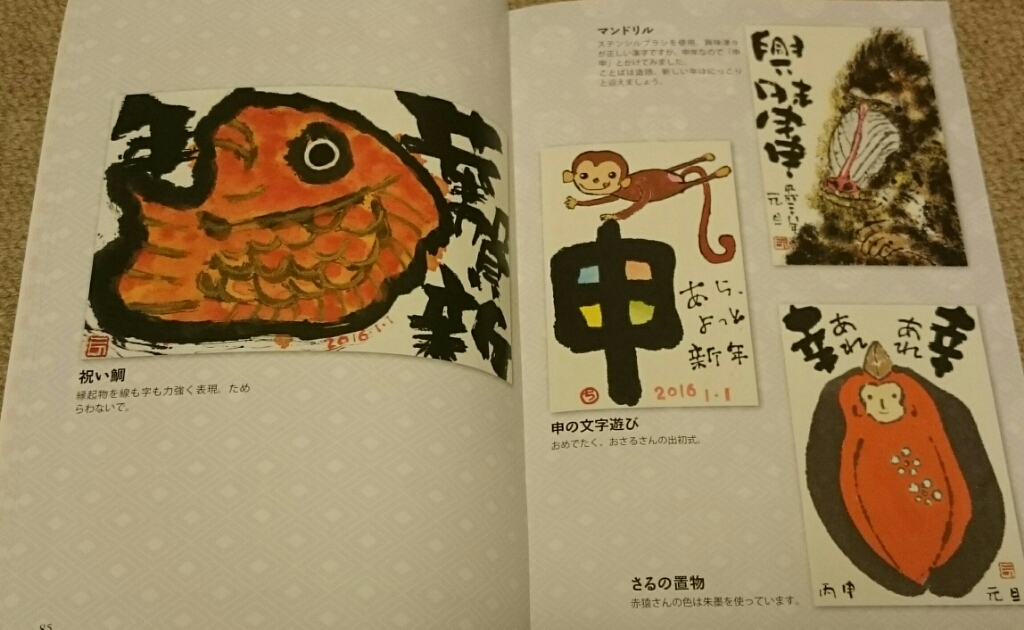 2016.1.1
祝い鯛
縁起物を線も字も力強く表現。ため
らわないで。
85
マンドリル
ステンシルブラシを使用。興味津々
が正しい漢字ですが、申年なので「申
申」とかけてみました。
ことばは造語。新しい年はにっこり
と迎えましょう。
興味
申申
元旦
申
あら、
よっと
新年
2016 1.1
申の文字遊び
おめでたく、おさるさんの出初式。
幸あれ
幸あれ
丙申
元旦
さるの置物
赤猿さんの色は朱墨を使っています。